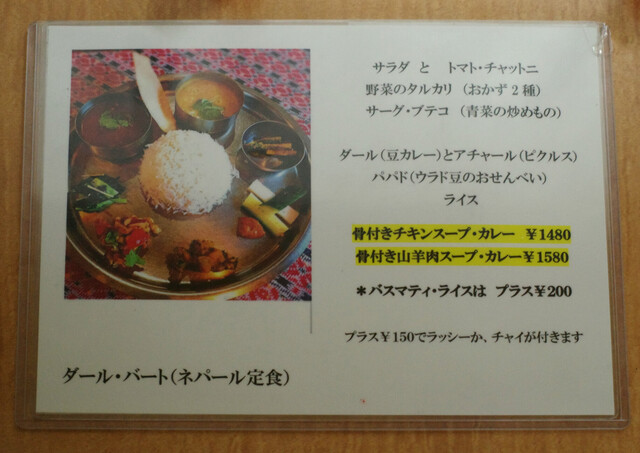 サラダ と トマト・チャットニ
野菜のタルカリ (おかず2種)
サーグ・ブテコ (青菜の炒めもの)
ダール(豆カレー)とアチャール(ピクルス)
パパド(ウラド豆のおせんべい)
ライス
骨付きチキンスープ・カレー ¥1480
骨付き山羊肉スープ・カレー¥1580
*バスマティ・ライスは プラス¥200
プラス¥150でラッシーか、チャイが付きます
ダール・バート(ネパール定食)